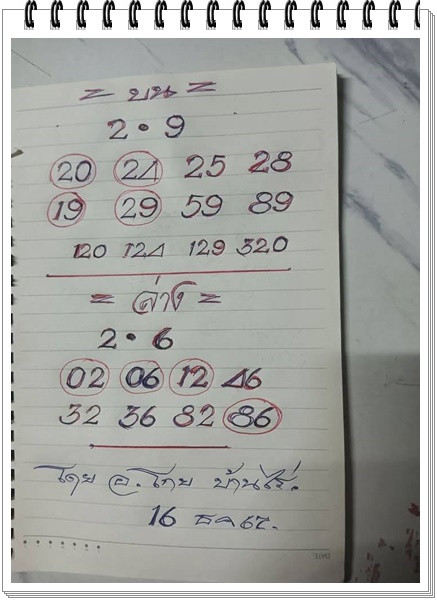 = บน =
2 • 9
20 24 25 28
19 29 59 89
120 124 129 320
= ล่าง =
2 • 6
02 06 12 46
32 36 82 86
โดย อ.โกย บ้านไร่.
16 ธค 67.